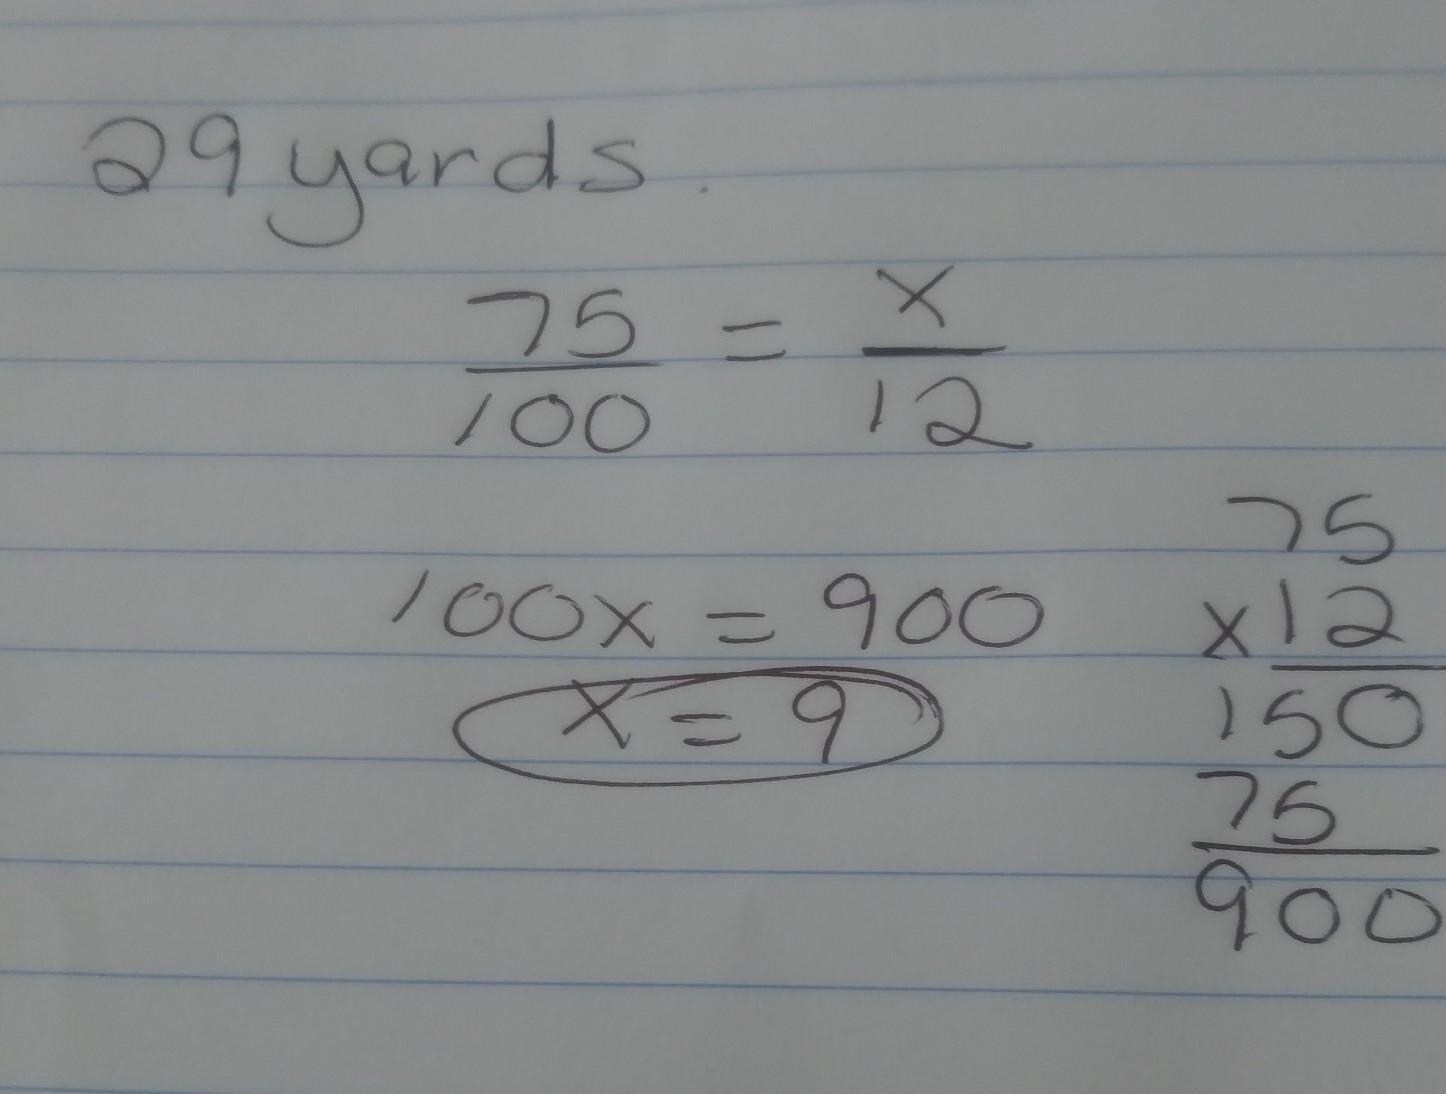 29 yards.
75/100 = x/12
100x = 900
x = 9
75
x12
150
75
900